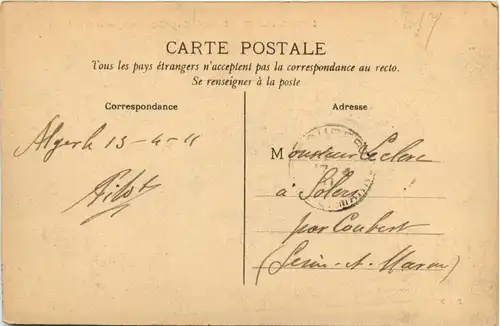 CARTE POSTALE
Tous les pays étrangers n'acceptent pas la correspondance au recto.
Se renseigner à la poste
Correspondance
Adresse
Alger le 15-4-11
Monsieur Leclerc
à Solers
par Coubert
(Seine-et-Marne)